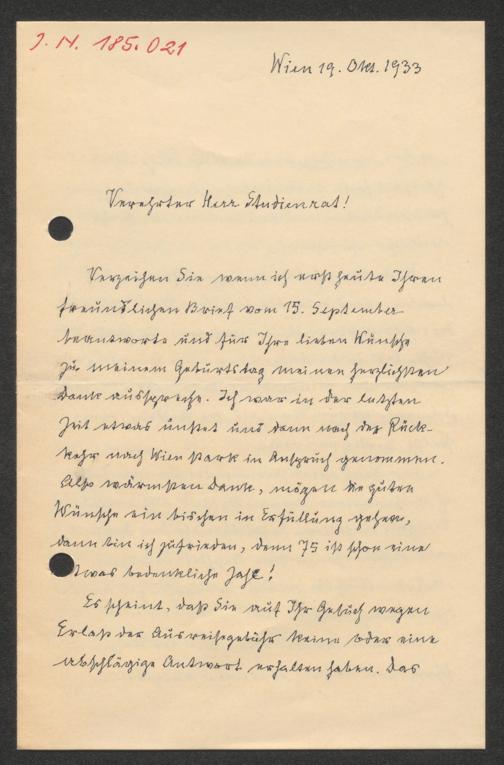 J. N. 185.021
Wien 19. Okt. 1933
Verehrter Herr Studienrat!
Verzeihen Sie wenn ich erst heute Ihren
freundlichen Brief vom 15. September
beantworte und für Ihre lieben Wünsche
zu meinem Geburtstag meinen herzlichsten
Dank ausspreche. Ich war in der letzten
Zeit etwas unstet und dann nach der Rück-
kehr nach Wien stark in Anspruch genommen.
Also wärmsten Dank, mögen die guten
Wünsche ein bischen in Erfüllung gehen,
dann bin ich zufrieden, denn 75 ist schon eine
etwas bedenkliche Zahl!
Es scheint, daß Sie auf Ihr Gesuch wegen
Erlaß der Ausreisegebühr keine oder eine
abschlägige Antwort erhalten haben. Das